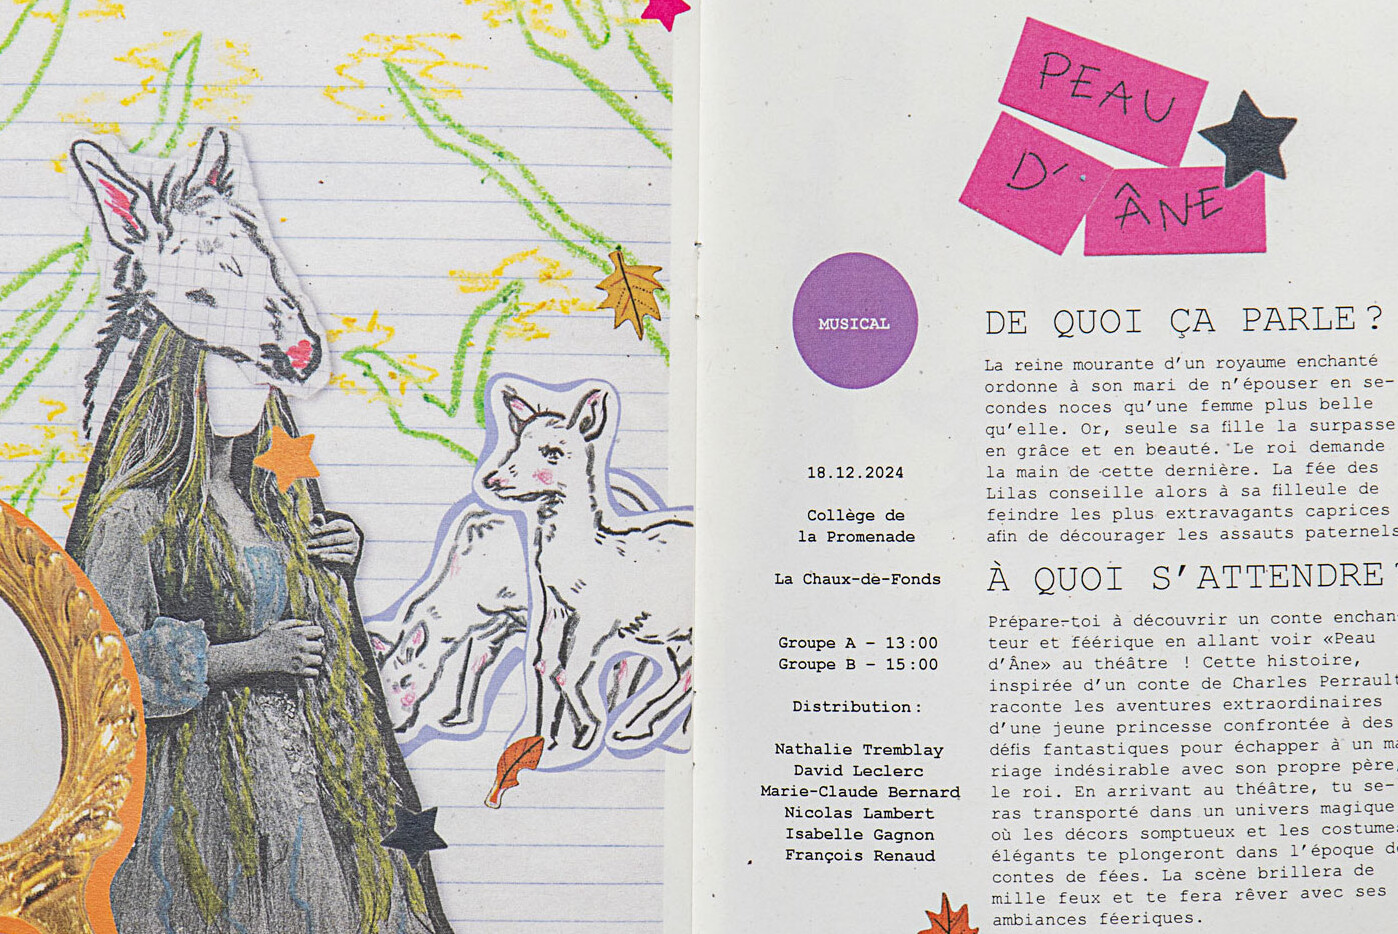 PEAU
D'
ÂNE
MUSICAL
18.12.2024
Collège de
la Promenade
La Chaux-de-Fonds
Groupe A – 13:00
Groupe B – 15:00
Distribution:
Nathalie Tremblay
David Leclerc
Marie-Claude Bernard
Nicolas Lambert
Isabelle Gagnon
François Renaud
DE QUOI ÇA PARLE?
La reine mourante d'un royaume enchanté
ordonne à son mari de n'épouser en se-
condes noces qu'une femme plus belle
qu'elle. Or, seule sa fille la surpasse
en grâce et en beauté. Le roi demande
la main de cette dernière. La fée des
Lilas conseille alors à sa filleule de
feindre les plus extravagants caprices
afin de décourager les assauts paternels
À QUOI S'ATTENDRE?
Prépare-toi à découvrir un conte enchan-
teur et féérique en allant voir «Peau
d'Âne» au théâtre ! Cette histoire,
inspirée d'un conte de Charles Perrault
raconte les aventures extraordinaires
d'une jeune princesse confrontée à des
défis fantastiques pour échapper à un ma
riage indésirable avec son propre père,
le roi. En arrivant au théâtre, tu se-
ras transporté dans un univers magique
où les décors somptueux et les costumes
élégants te plongeront dans l'époque de
contes de fées. La scène brillera de
mille feux et te fera rêver avec ses
ambiances féeriques.